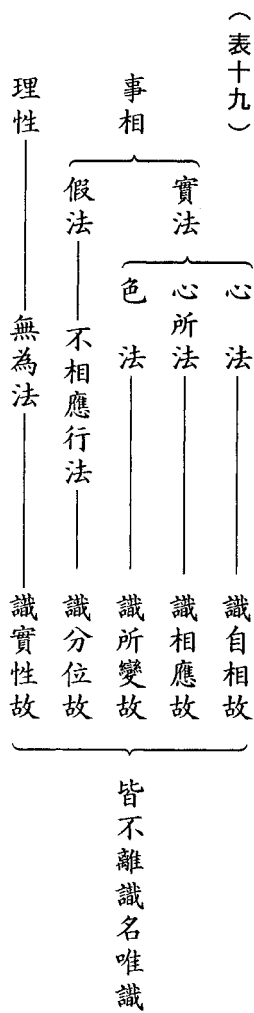 （表十九）
事相
實法
心法
識自相故
心所法
識相應故
色法
識所變故
假法
不相應行法
識分位故
理性
無為法
識實性故
皆不離識名唯識